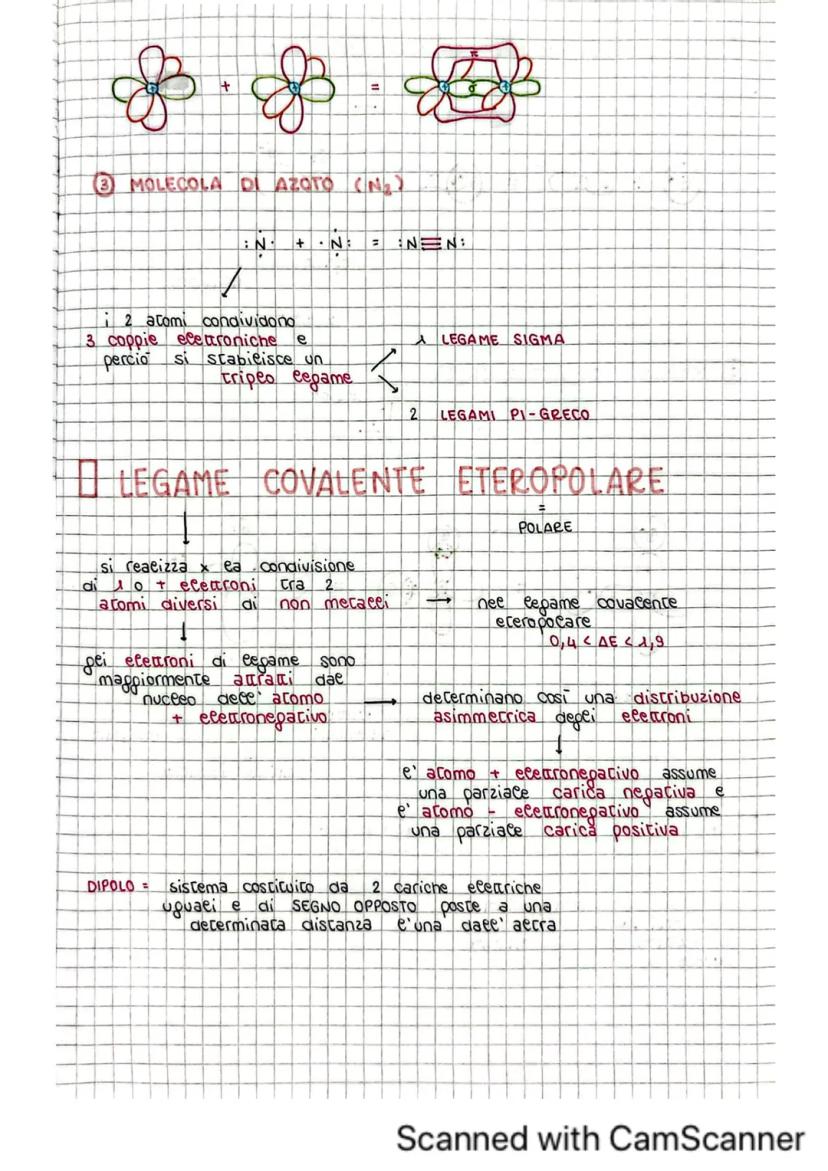 + = π σ
③ MOLECOLA DI AZOTO (N₂)
:Ṇ̇· + ·Ṇ̇: = :N≡N:
i 2 atomi condividono
3 coppie elettroniche e
perciò si stabilisce un
triplo legame
1 LEGAME SIGMA
2 LEGAMI PI-GRECO
LEGAME COVALENTE ETEROPOLARE
=
POLARE
si realizza x la condivisione
di 1 o + elettroni tra 2
atomi diversi di non metalli
→ nel legame covalente
eteropolare
0,4 < ΔE < 1,9
gli elettroni di legame sono
maggiormente attratti dal
nucleo dell' atomo
+ elettronegativo
→ determinano così una distribuzione
asimmetrica degli elettroni
l' atomo + elettronegativo assume
una parziale carica negativa e
l' atomo - elettronegativo assume
una parziale carica positiva
DIPOLO = sistema costituito da 2 cariche elettriche
uguali e di SEGNO OPPOSTO poste a una
determinata distanza l'una dall' altra
Scanned with CamScanner